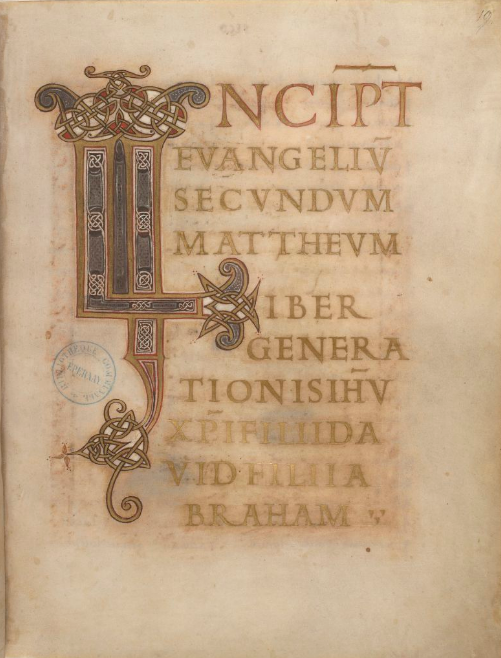 INCIP̄T
EVANGELIV̄
SECVNDVM
MATTHEVM
LIBER
GENERA
TIONIS IH̄V
XP̄I FILII DA
VID FILII A
BRAHAM